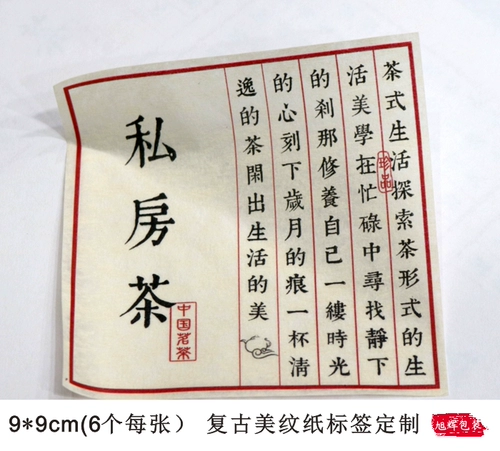 茶式生活探索茶形式的生
活美學在忙碌中尋找靜下
的刹那修養自己一縷時光
的心刻下歲月的痕一杯清
逸的茶閑出生活的美
珍品
私房茶
中国茗茶
9*9cm(6个每张） 复古美纹纸标签定制
旭辉包装